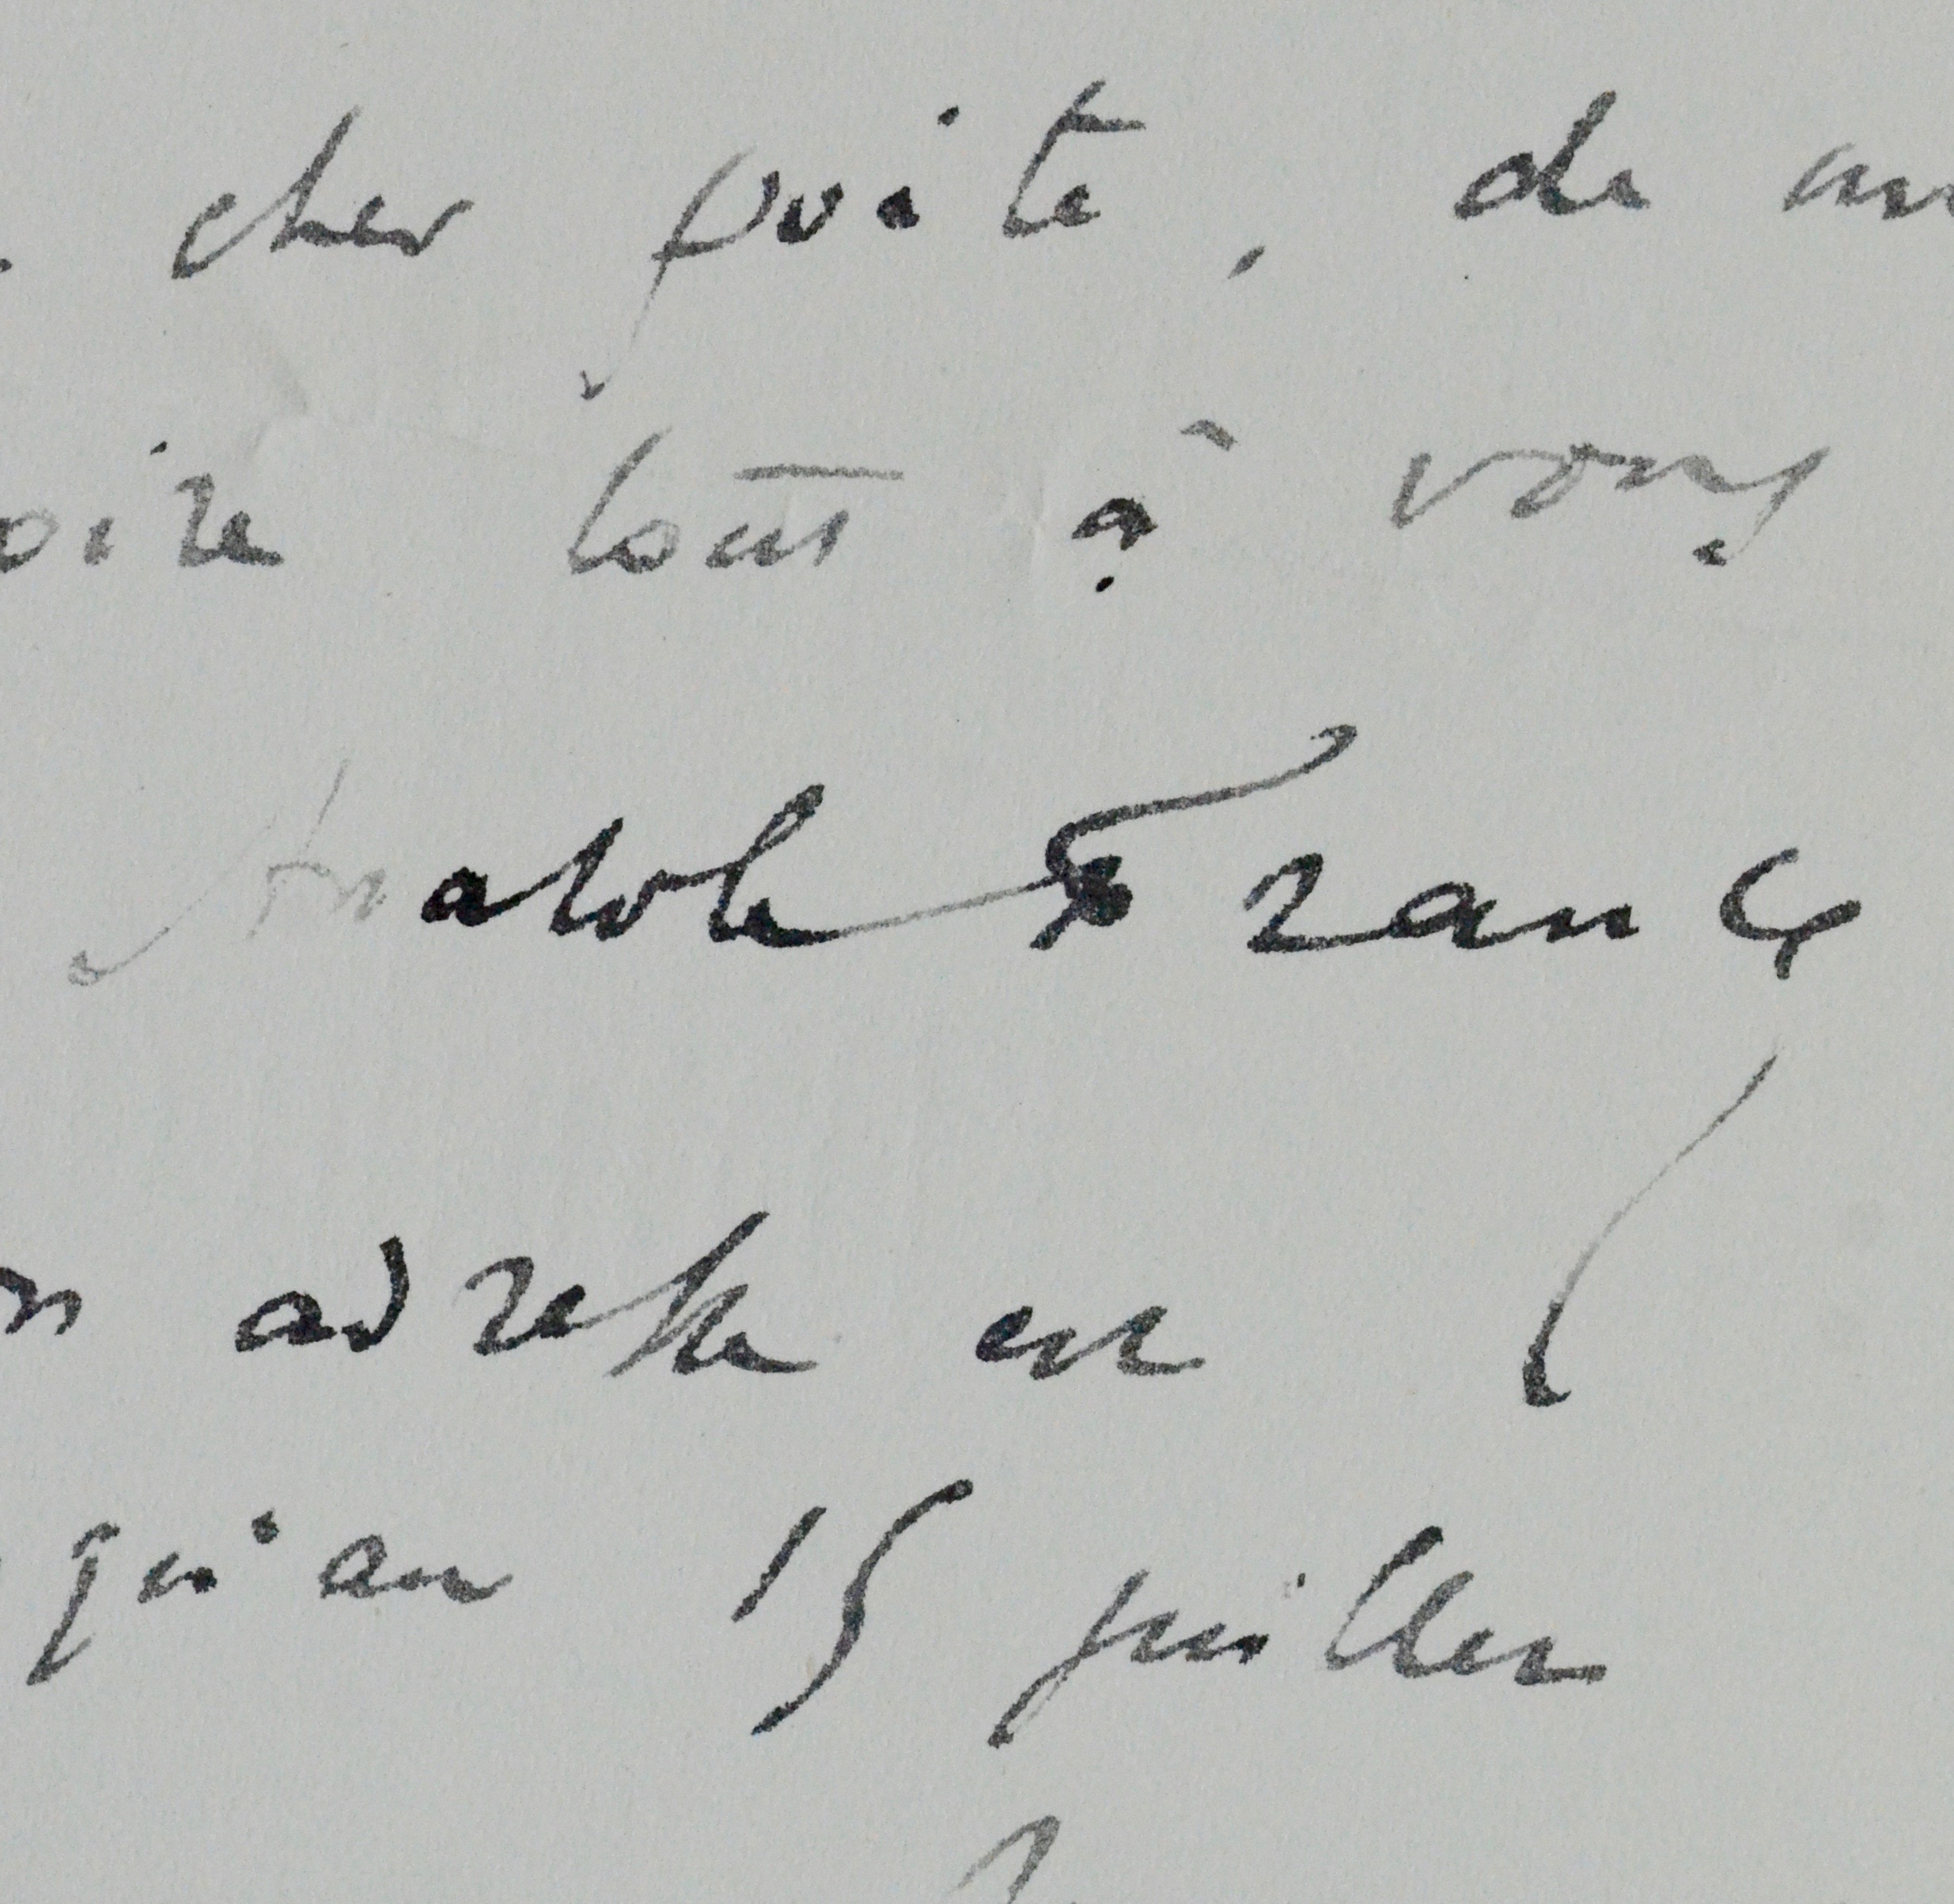 cher poète, de m
oire tout à vous
Anatole France
n adresse est
qu'au 15 juillet